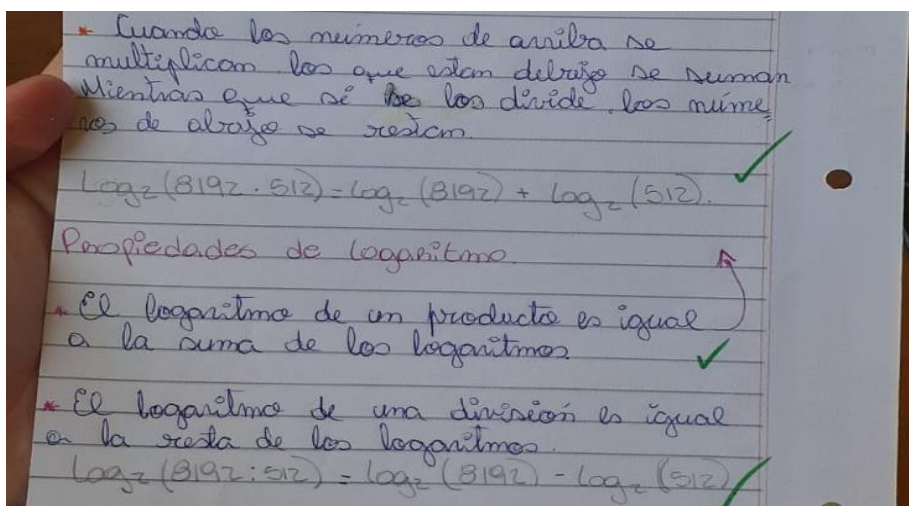 * Cuando los números de arriba se
multiplican los que estan debajo se suman
Mientras que sí se los divide los núme
ros de abajo se restan.
Log₂(8192 . 512) = Log₂ (8192) + Log₂ (512).
Propiedades de logaritmo.
* El logaritmo de un producto es igual
a la suma de los logaritmos.
* El logaritmo de una división es igual
a la resta de los logaritmos.
Log₂(8192:512) = Log₂ (8192) - Log₂ (512)